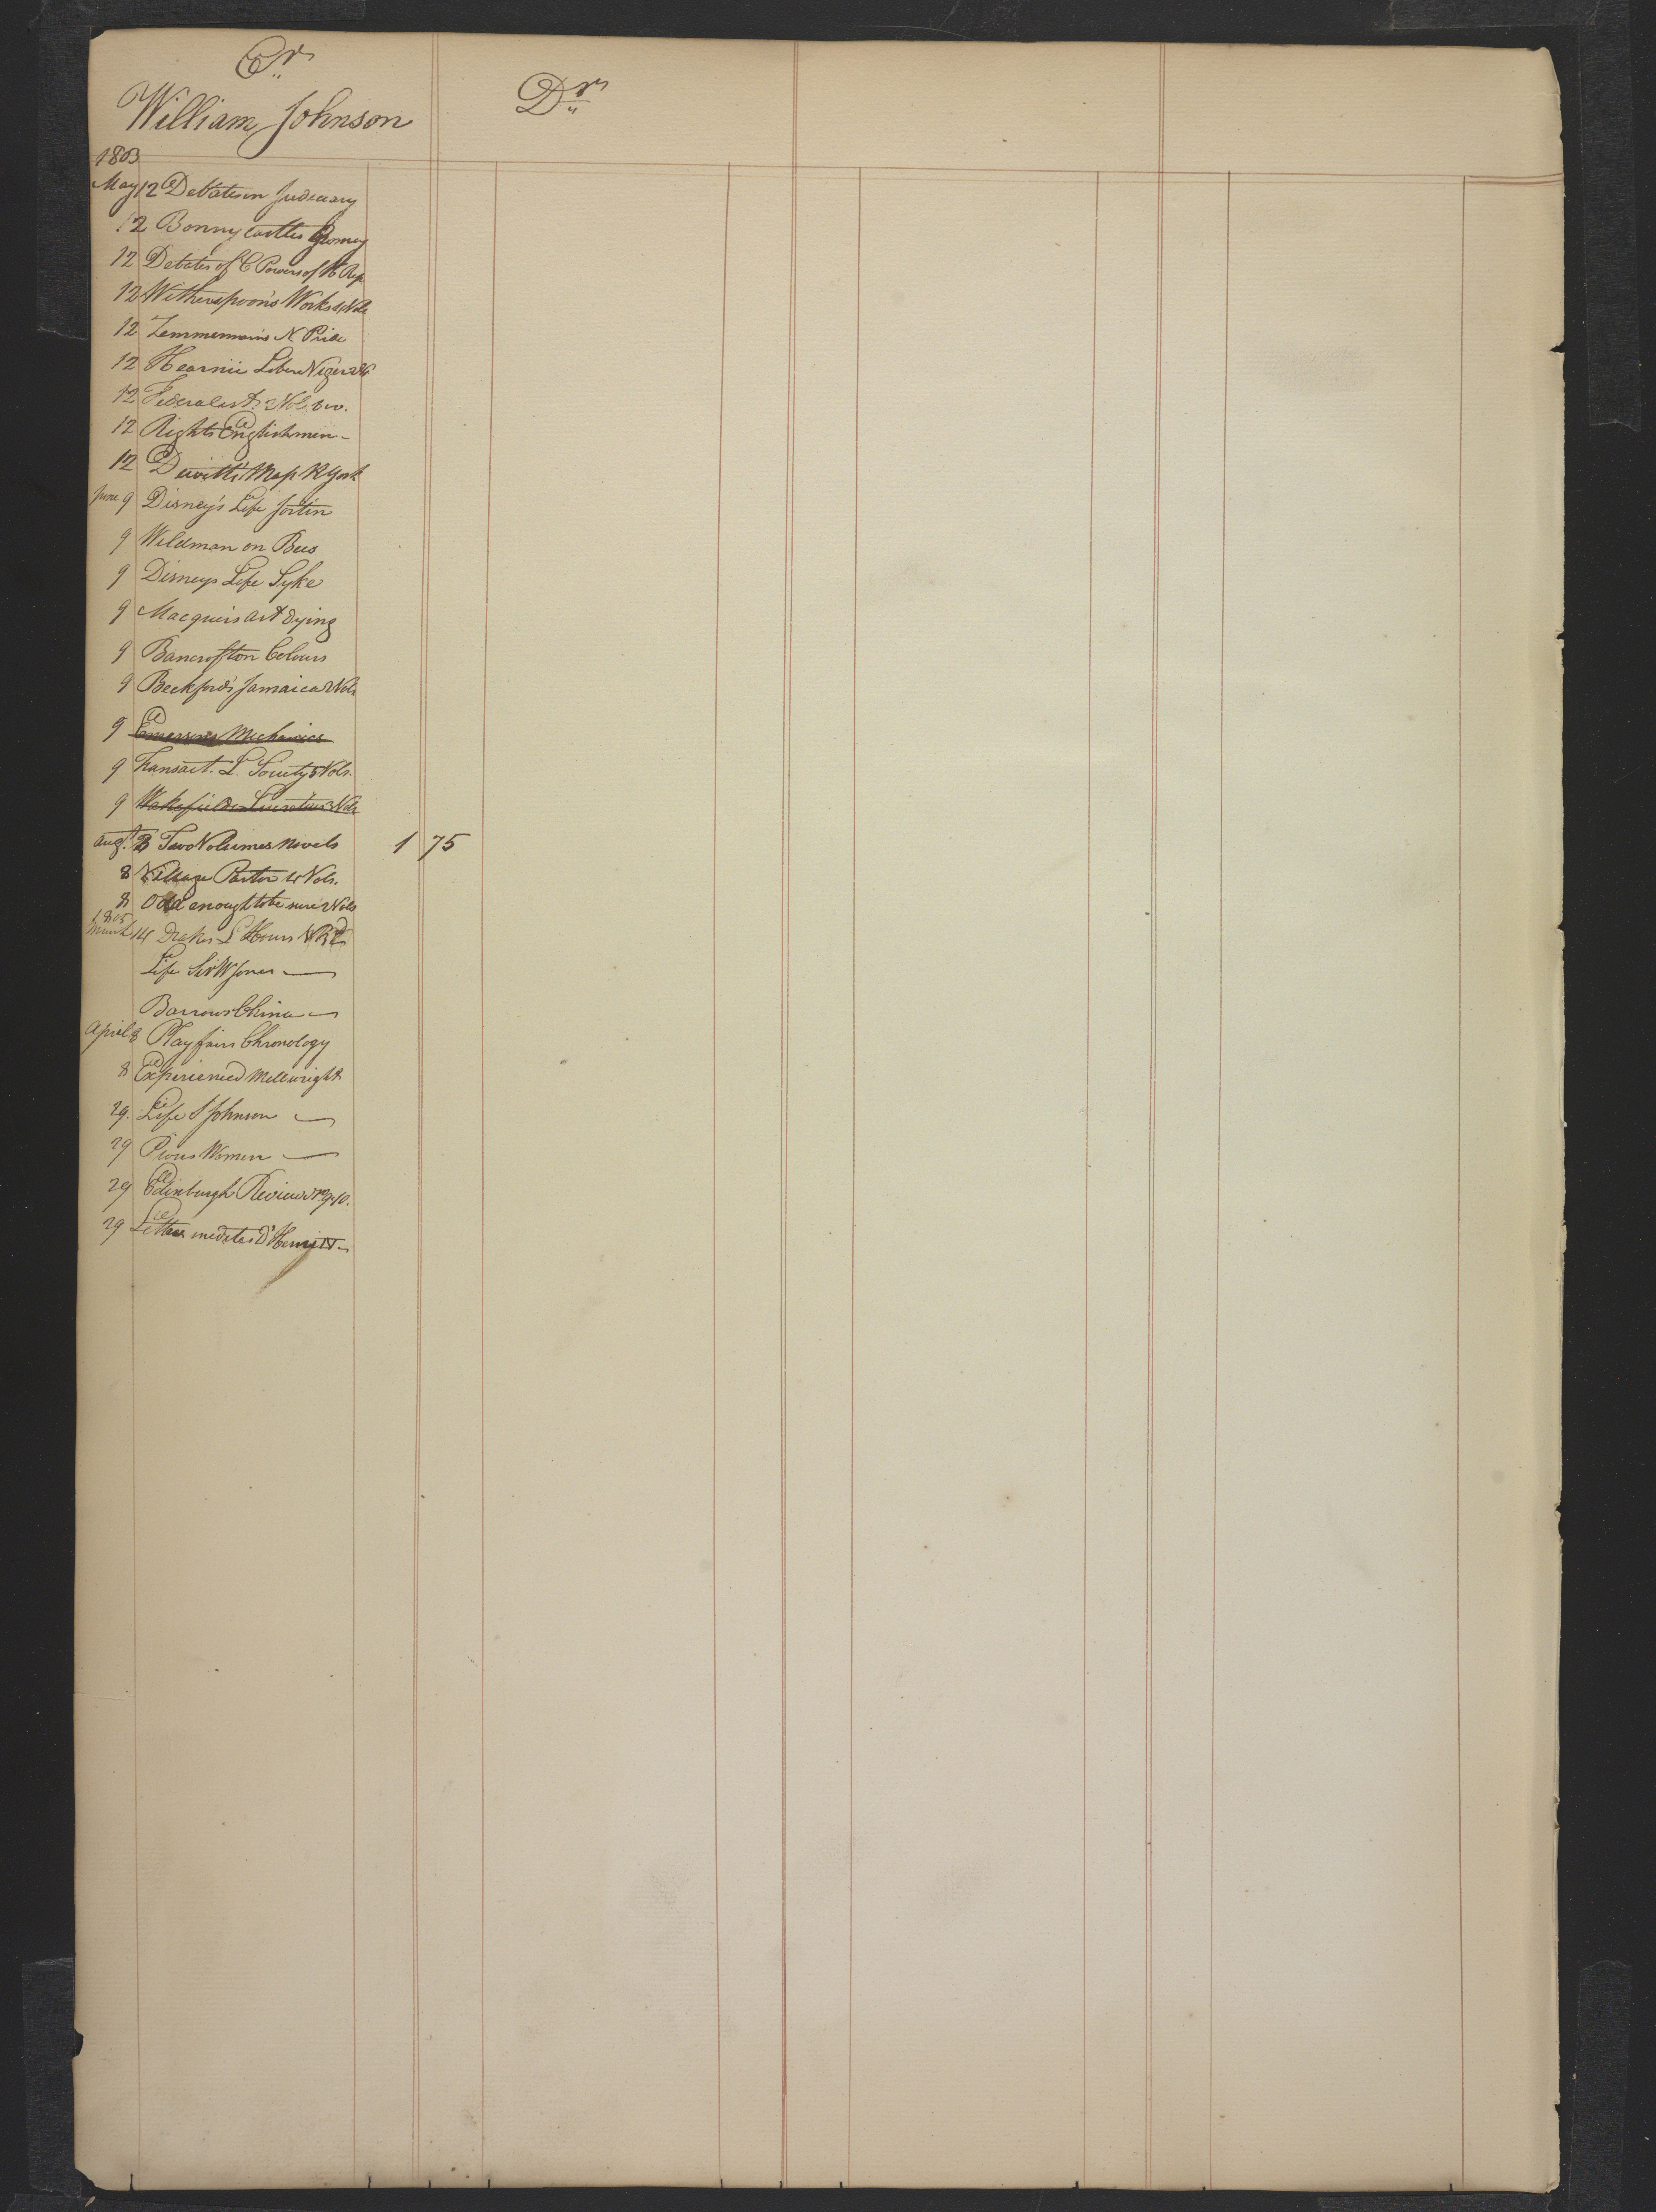 Cr.
Dr.
William Johnson
1803
May 12 Debates on Judiciary
12 Bonnycastles
12 Debates of C Powers of H Rep
12 Witherspoon's Works 4 Vols
12 Zemmerman's N Pride
12 Hearnii Liber Niger 2 V
12 Federalist 2 Vol. 8vo.
12 Rights Englishmen -
12 Dewitt's Map N York
June 9 Disney's Life Jortin
9 Wildman on Bees
9 Disneys Life Syke
9 Macquer's art dying
9 Bancroft on Colours
9 Beckford's Jamaica 2 Vols
9 Emersons Mechanics
9 Transact. L. Society 5 Vols.
9 Wakefields Lucretius 3 Vols
Augt. 8 Two Volumes Novels 1 75
8 Village Pastor 4 Vols.
8 Odd enough to be sure 2 Vols
1805
March 14 Drakes L Hours
Life Sir W Jones —
Barrows China —
April 8 Playfairs Chronology
8 Experienced Millwright
29. Life S Johnson —
29 Pious Women —
29 Edinburgh Review No 9 & 10.
29 Lettres inedites d'Henri IV —